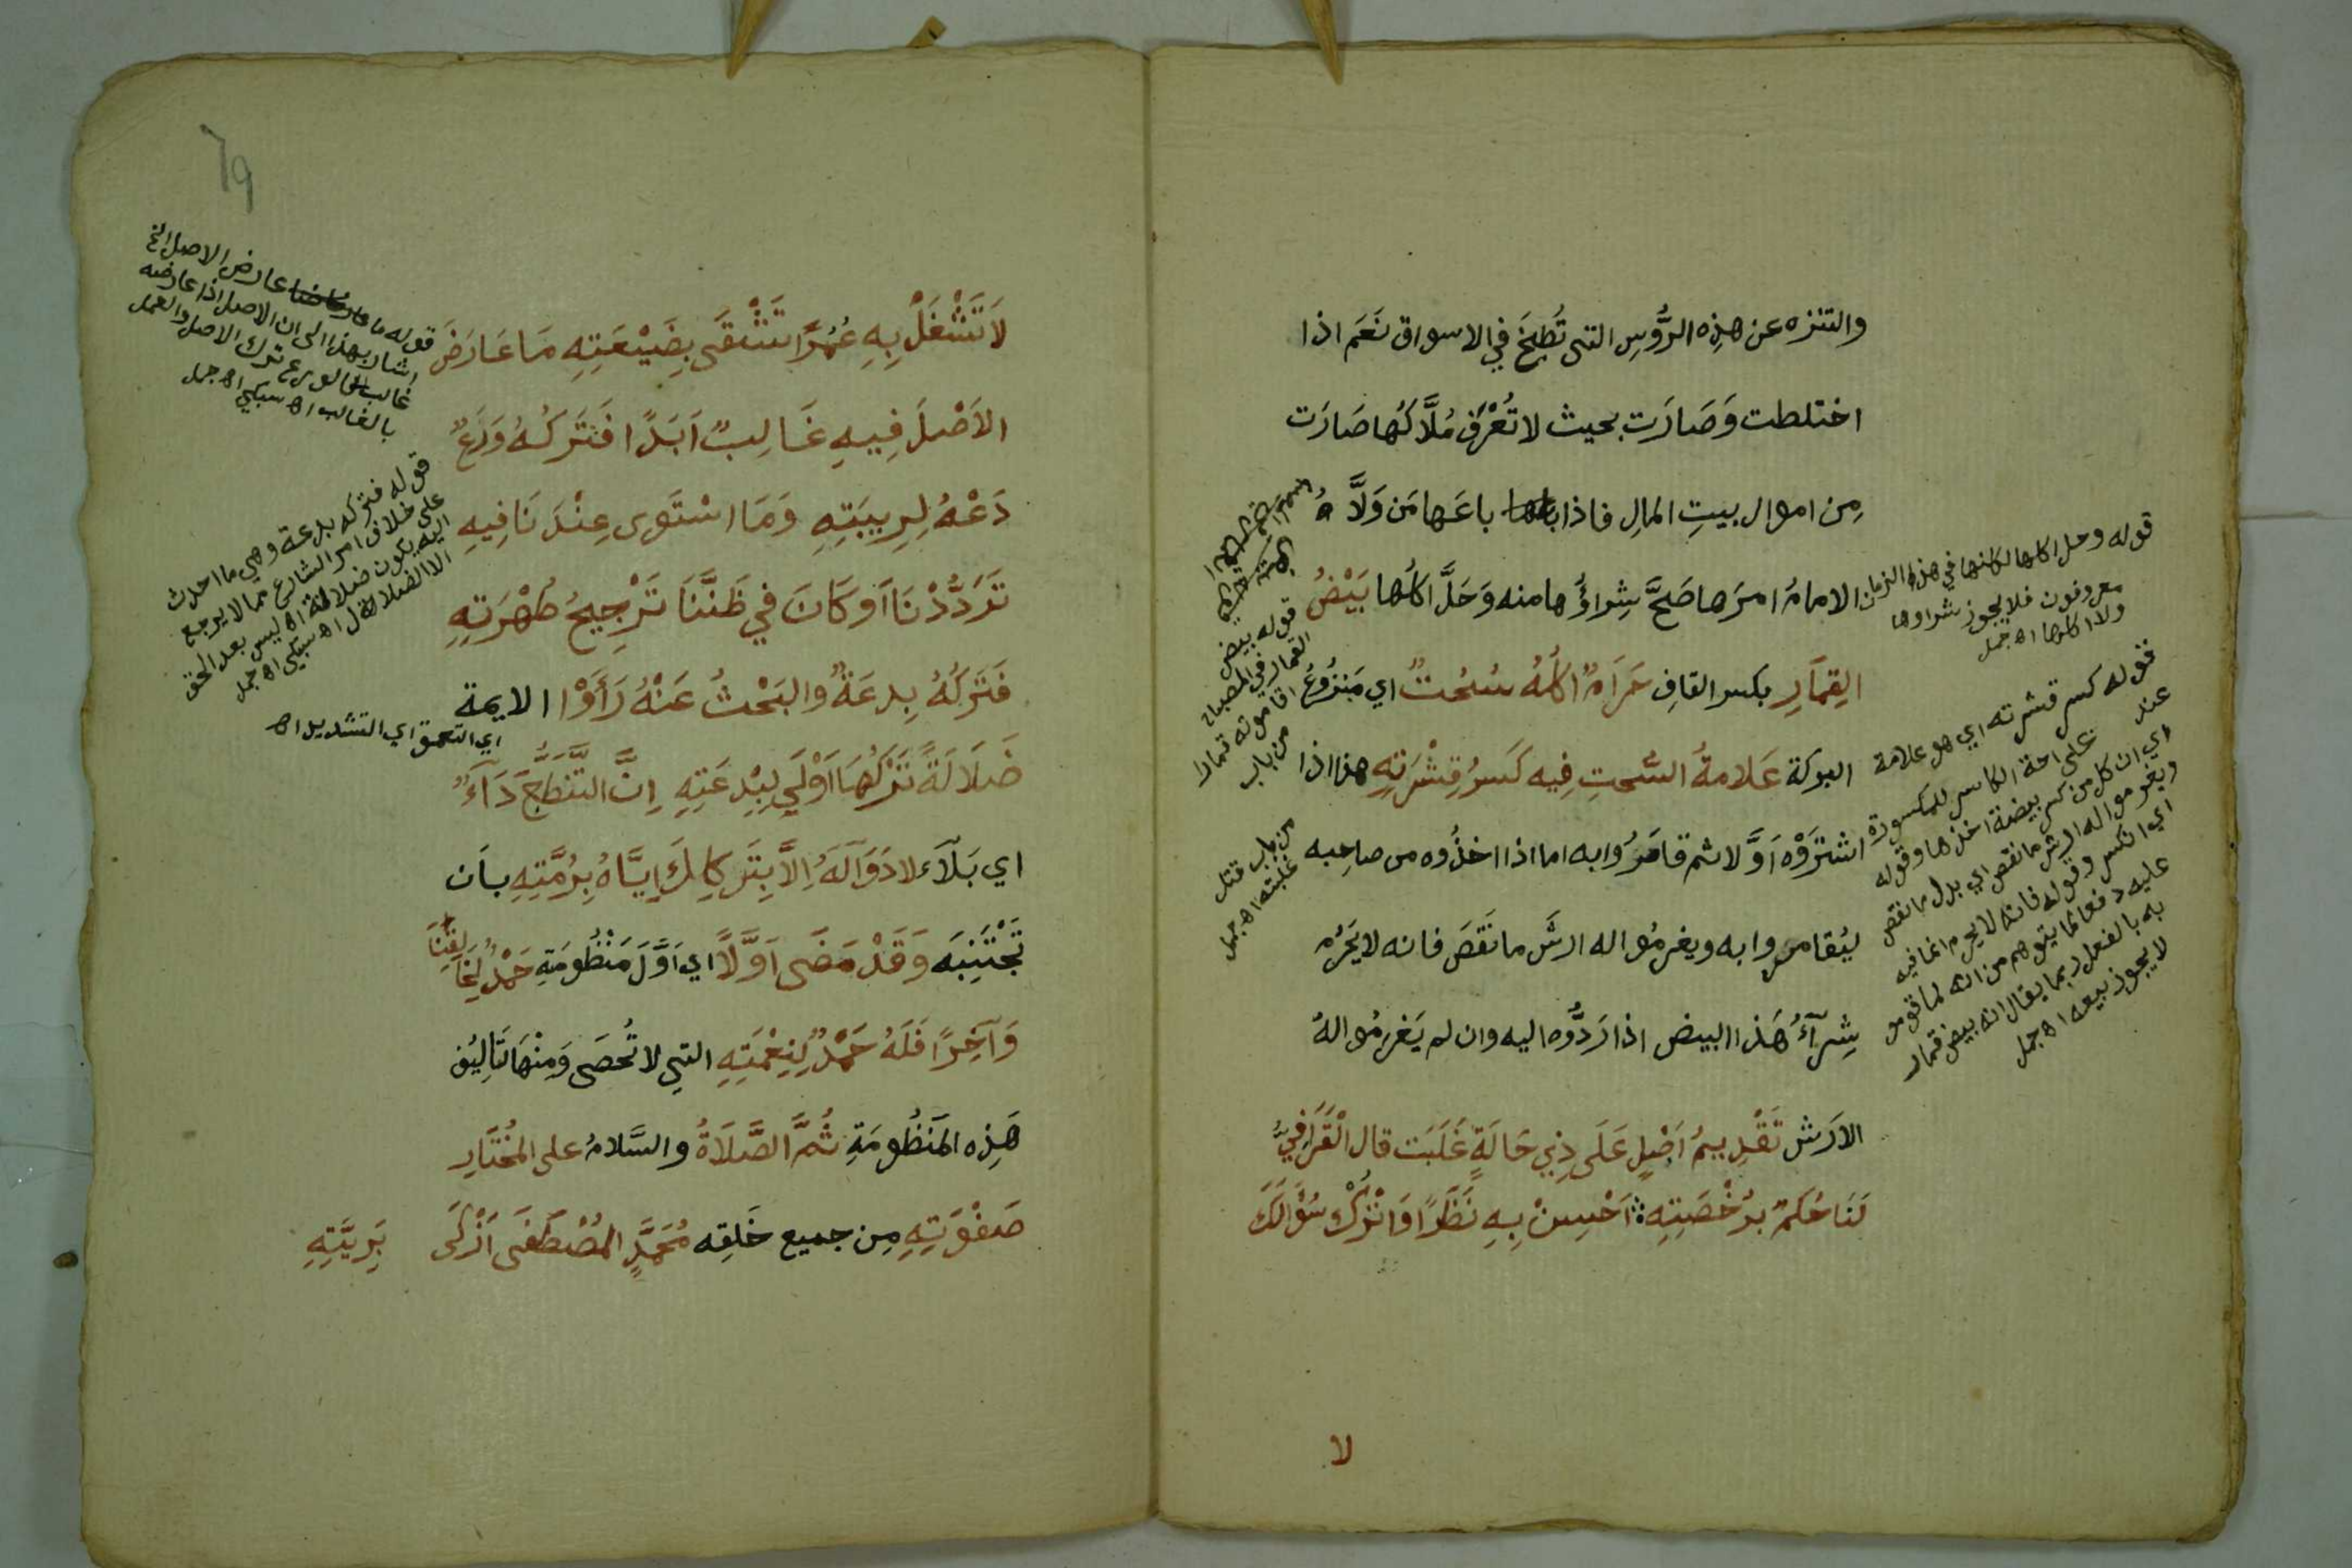 والتنزه عن هذِه الرُّوسِ التى تُطبَخَ في الاسواق نَعَم اذا
اختلطت وَصَارَت بحيث لا تُعْرَف مُلَّاكُها صَارَت
مِن اموال بيتِ المالِ فاذا باعَها مَن وَلَّاهُ
الامامُ امرَها صَحَّ شِراؤُها منه وَحَلَّ اكلُها بَيْضُ
القِمَارِ بكسر القافِ حَرَامٌ اكلُهُ سُحُتٌ اي مَنزُوعُ
البركة عَلامةُ السُّحتِ فِيه كَسرُ قِشْرَتِهِ هذا اذا
اشتَرَوْه اَوَّلا ثم قامَرُوا به اما اذا اخذُوه من صاحِبه
ليُقامروا به ويغرمُوا له ارشَ ما نَقَصَ فانه لا يَحَرُم
شِرآءُ هَذا البيض اذا رَدُّوه اليه وان لم يَغرمُوا لهُ
الارَش تَقْدِيمُ اَصْلٍ عَلَى ذِي حَالَةٍ غَلَبَت قال الْقَرَافِيُّ
لَنَا حُكم بِرُخْصَتِهِ اَحْسِنْ بِهِ نَظَرًا وَاتْرُكْ سُؤَالَكَ
لا
قوله وحل اكلها لكنها في هذا الزمان
معروفون فلا يجوز شراوها
ولا اكلها اهـ جمل
قوله كسر قشرته اي هو علامة
عند
اي ان كل من كسر بيضة اخذها وقوله
ويغرموا له ارش ما نقص اي بدل ما نقص
اي انكسر وقوله فانه لا يحرم انما فيه
عليه دفعا لما يتوهم من انه لما قومر
به بالفعل ربما يقال انه بيض قمار
لا يجوز بيعه اهـ جمل
قوله بيض
القمار في المصباح
من باب
من باب قتل
غلبته اهـ جمل
69
لَا تَشْغَلْ بِهِ عُمُرًا تَشْقَى بِضَيْعَتِهِ مَا عَارَضَ
الاَصْلَ فِيهِ غَالِبٌ اَبَدًا فَتَرَكُهُ وَرَعٌ
دَعْهُ لِرِيبَتِهِ وَمَا اسْتَوى عِنْدَنَا فِيهِ
تَرَدُّدْنَا اَو كَانَ في ظَنِّنَا تَرْجِيحُ طُهْرَتِهِ
فَتَركُهُ بِدعَةٌ والبَحْثُ عَنْهُ رَأَوْا الايمة
ضَلَالَةً تَرْكُهَا اَوْلَى لِبِدْعَتِهِ اِنَّ التَّنَطُّعَ دَآءٌ
اي بَلَآء لا دَوَآلَهُ اِلاَّ بِتَركِكَ اِيَّاهُ بِرُمَّتِهِ باَن
تَجْتَنِبَه وَقَدْ مَضَى اَوَّلاً اي اَوَّلَ مَنْظُومَتِهِ حَمْدٌ لِخَالِقِنَا
وَآخِرًا فَلَهُ حَمْدٌ لِنِعْمَتِهِ التي لا تُحصَى وَمِنْهَا تَالِيُف
هَذِه المَنظُومَةِ ثُمَّ الصَّلَاةُ والسَّلامُ على المُختَارِ
صَفْوَتِهِ مِن جميع خَلِقه مُحَمَّدٍ المُصْطَفَى اَزْكَى بَرِيَّتِهِ
قوله ما عارض الاصل الخ
اشار بهذا الى ان الاصل اذا عارضه
غالب فالورع ترك الاصل والعمل
بالغالب اهـ سبكي اهـ جمل
قوله فتركه بدعة وهي ما احدث
على خلاف امر الشارع مما لا يرجع
اليه يكون ضلالة اهـ ليس بعد الحق
الا الضلال اهـ سبكي اهـ جمل
اي التعمق اي التشديد اهـ